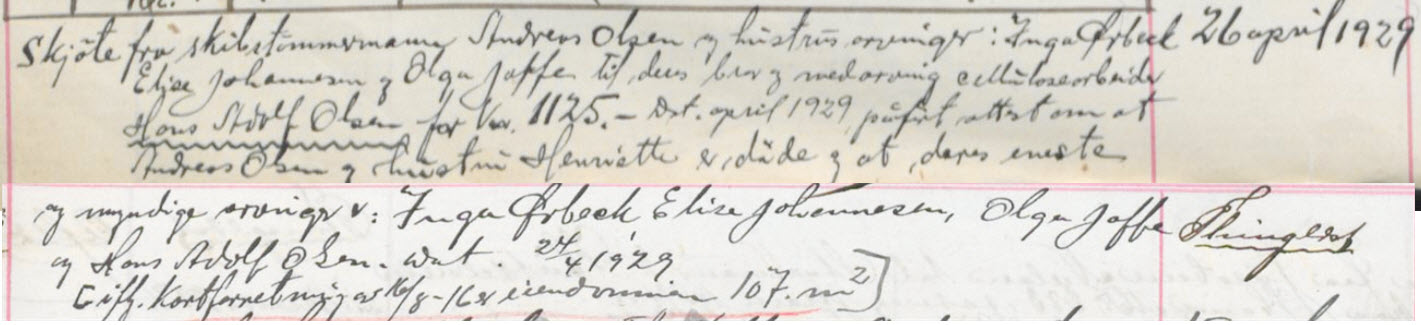 Skjöte fra skibstömmermann Andreas Olsen og hustrüs arvinger: Inga Ørbeck 26 april 1929
Elise Johannesen og Olga Jaffe til deres bror og medarving cellülosearbeider
Hans Adolf Olsen for kr. 1125.– Dat. april 1929, påfört attest om at
Andreas Olsen og hüstrü Henriette er döde og at deres eneste
og myndige arvinger er: Inga Ørbeck Elise Johannesen, Olga Jaffe Thinglest
og Hans Adolf Olsen. dat. 24/4 1929
Eift. Kartforretning av 16/8-16 er eiendommen 107. m²]